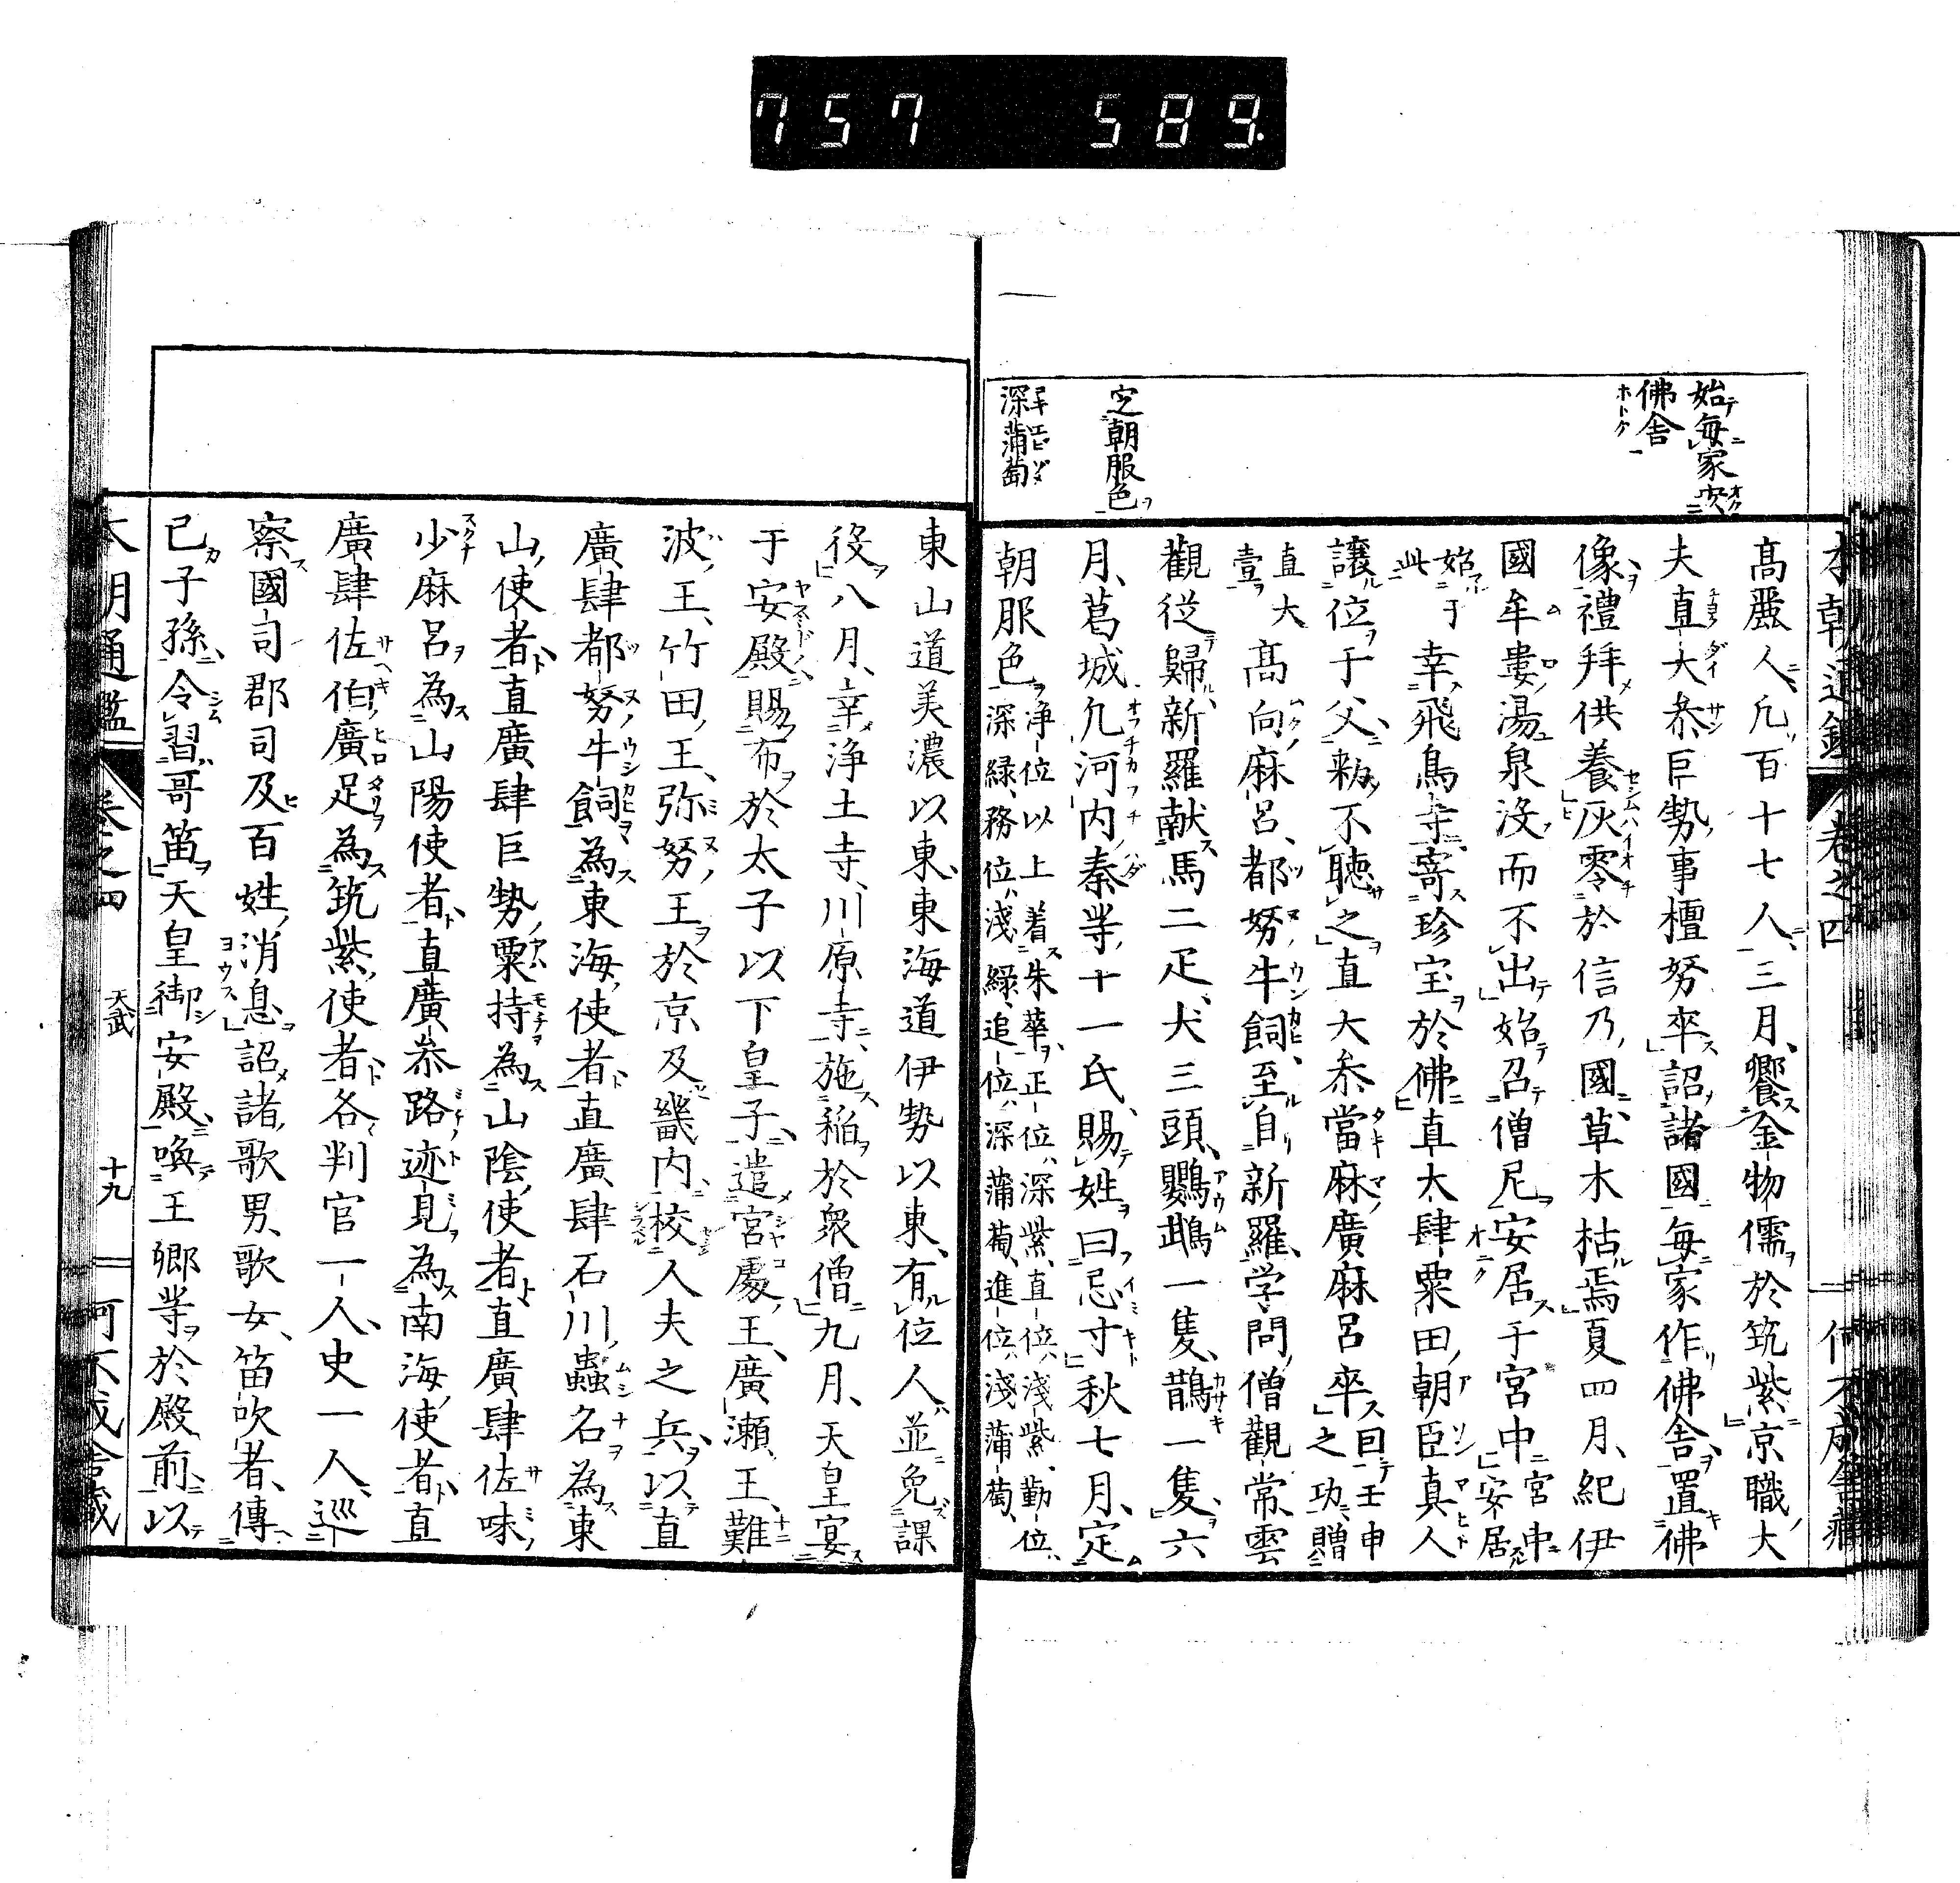 757 589.
始毎家安
佛舎
定朝服色
深蒲萄
本朝通鑑 卷之四
髙麗人凢百十七人三月饗金物儒於筑紫京職大
夫直大叅巨勢事檀努卒詔諸國毎家作佛舎置佛
像禮拜供養灰零於信乃國草木枯焉夏四月紀伊
國牟婁湯泉没而不出始召僧尼安居于宮中宮中安居
始于此幸飛鳥寺寄珍宝於佛直大肆粟田朝臣真人
譲位于父勑不聴之直大叅當麻廣麻呂卒回壬申之功贈
直大壹髙向麻呂都努牛飼至自新羅学問僧觀常雲
觀従歸新羅献馬二疋犬三頭鸚鵡一隻鵲一隻六
月葛城凢河内秦䒭十一氏賜姓曰忌寸秋七月定
朝服色浄位以上着朱華正位深紫直位淺紫勤位深緑務位淺緑追位深蒲萄進位淺蒲萄
東山道美濃以東東海道伊勢以東有位人並免課
役八月幸浄土寺川原寺施稲於衆僧九月天皇宴
于安殿賜布於太子以下皇子遣宮處王廣瀬王難
波王竹田王弥努王於京及畿内校人夫之兵以直
廣肆都努牛飼為東海使者直廣肆石川蟲名為東
山使者直廣肆巨勢粟持為山陰使者直廣肆佐味
少麻呂為山陽使者直廣叅路迹見為南海使者直
廣肆佐伯廣足為筑紫使者各判官一人史一人巡
察國司郡司及百姓消息詔諸歌男歌女笛吹者傳
己子孫令習哥笛天皇御安殿喚王卿䒭於殿前以
本朝通鑑 卷之四 天武 十九